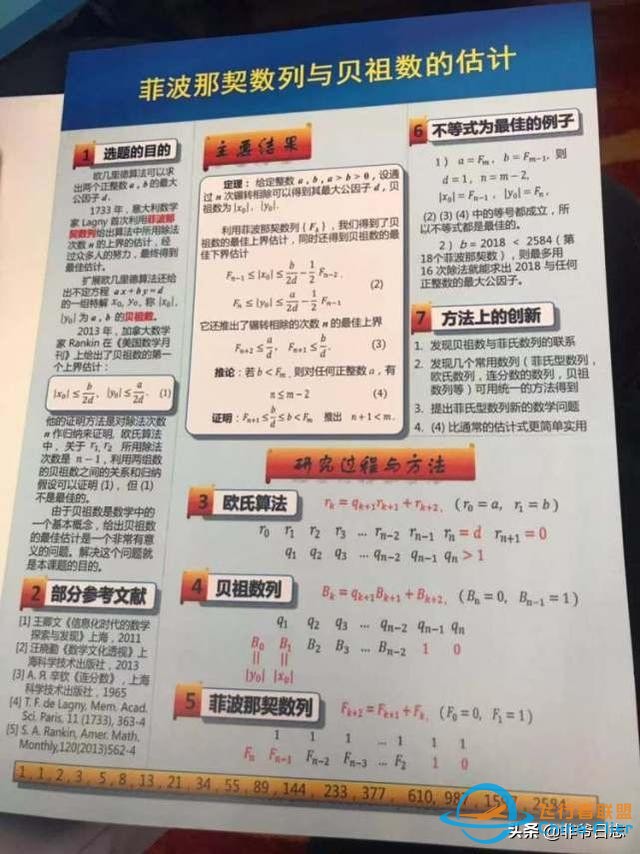 菲波那契数列与贝祖数的估计
1 选题的目的
欧几里德算法可以求
出两个正整数 a , b 的最大
公因子 d .
1733 年，意大利数学
家 Lagny 首次利用菲波那
契数列给出算法中所用除法
次数 n 的上界的估计，经
过众多人的努力，最终得到
最佳估计。
扩展欧几里德算法还给
出不定方程 ax+by=d
的一组特解 x₀, y₀, 称 |x₀|,
|y₀| 为 a, b 的贝祖数。
2013 年，加拿大数学
家 Rankin 在《美国数学月
刊》上给出了贝祖数的第一
个上界估计：
|x₀| ≤ b/2d, |y₀| ≤ a/2d. (1)
他的证明方法是对除法次数
n 作归纳来证明, 欧氏算法
中，关于 r₁, r₂ 所用除法
次数是 n − 1，利用两组数
的贝祖数之间的关系和归纳
假设可以证明 (1)，但 (1)
不是最佳的。
由于贝祖数是数学中的
一个基本概念，给出贝祖数
的最佳估计是一个非常有意
义的问题。解决这个问题就
是本课题的目的。
2 部分参考文献
[1] 王卿文《信息化时代的数学
探索与发现》上海，2011
[2] 汪晓勤《数学文化透视》上
海科学技术出版社，2013
[3] A. Я. 辛钦《连分数》，上海
科学技术出版社，1965
[4] T. F. de Lagny, Mem. Acad.
Sci. Paris, 11 (1733), 363-4
[5] S. A. Rankin, Amer. Math.
Monthly,120(2013)562-4
主要结果
定理：给定整数 a , b , a > b > 0 , 设通
过 n 次辗转相除可以得到其最大公因子 d , 贝
祖数为 |x₀|, |y₀|.
利用菲波那契数列 {Fₖ}，我们得到了贝
祖数的最佳上界估计，同时还得到贝祖数的最
佳下界估计
Fₙ₋₁ ≤ |x₀| ≤ b/2d − 1/2 Fₙ₋₂ ,
(2)
Fₙ ≤ |y₀| ≤ a/2d − 1/2 Fₙ₋₁
它还推出了辗转相除的次数 n 的最佳上界
Fₙ₊₂ ≤ a/d, Fₙ₊₁ ≤ b/d. (3)
推论：若 b < Fₘ, 则对任何正整数 a , 有
n ≤ m − 2 (4)
证明：Fₙ₊₁ ≤ b/d ≤ b < Fₘ 推出 n + 1 < m .
6 不等式为最佳的例子
1 ) a = Fₘ , b = Fₘ₋₁, 则
d = 1, n = m − 2,
|x₀| = Fₙ₋₁ , |y₀| = Fₙ ,
(2) (3) (4) 中的等号都成立，所
以不等式都是最佳的。
2 ) b = 2018 < 2584 ( 第
18个菲波那契数 )，则最多用
16 次除法就能求出 2018 与任何
正整数的最大公因子。
7 方法上的创新
1. 发现贝祖数与菲氏数列的联系
2. 发现几个常用数列（菲氏型数列，
欧氏数列，连分数的数列，贝祖
数列等）可用统一的方法得到
3. 提出菲氏型数列新的数学问题
4. (4) 比通常的估计式更简单实用
研究过程与方法
3 欧氏算法 rₖ = qₖ₊₁rₖ₊₁ + rₖ₊₂, ( r₀ = a, r₁ = b )
r₀ r₁ r₂ r₃ … rₙ₋₂ rₙ₋₁ rₙ = d rₙ₊₁ = 0
q₁ q₂ q₃ … qₙ₋₂ qₙ₋₁ qₙ > 1
4 贝祖数列 Bₖ = qₖ₊₁Bₖ₊₁ + Bₖ₊₂, ( Bₙ = 0, Bₙ₋₁ = 1 )
q₁ q₂ q₃ … qₙ₋₂ qₙ₋₁ qₙ
B₀ B₁ B₂ B₃ … Bₙ₋₂ 1 0
|| ||
|y₀| |x₀|
5 菲波那契数列 Fₖ₊₂ = Fₖ₊₁ + Fₖ, ( F₀ = 0, F₁ = 1 )
1 1 1 … 1 1 1
Fₙ Fₙ₋₁ Fₙ₋₂ Fₙ₋₃ … F₂ 1 0
1, 1, 2, 3, 5, 8, 13, 21, 34, 55, 89, 144, 233, 377, 610, 2584
飞行者联盟
头条 @非爷日志